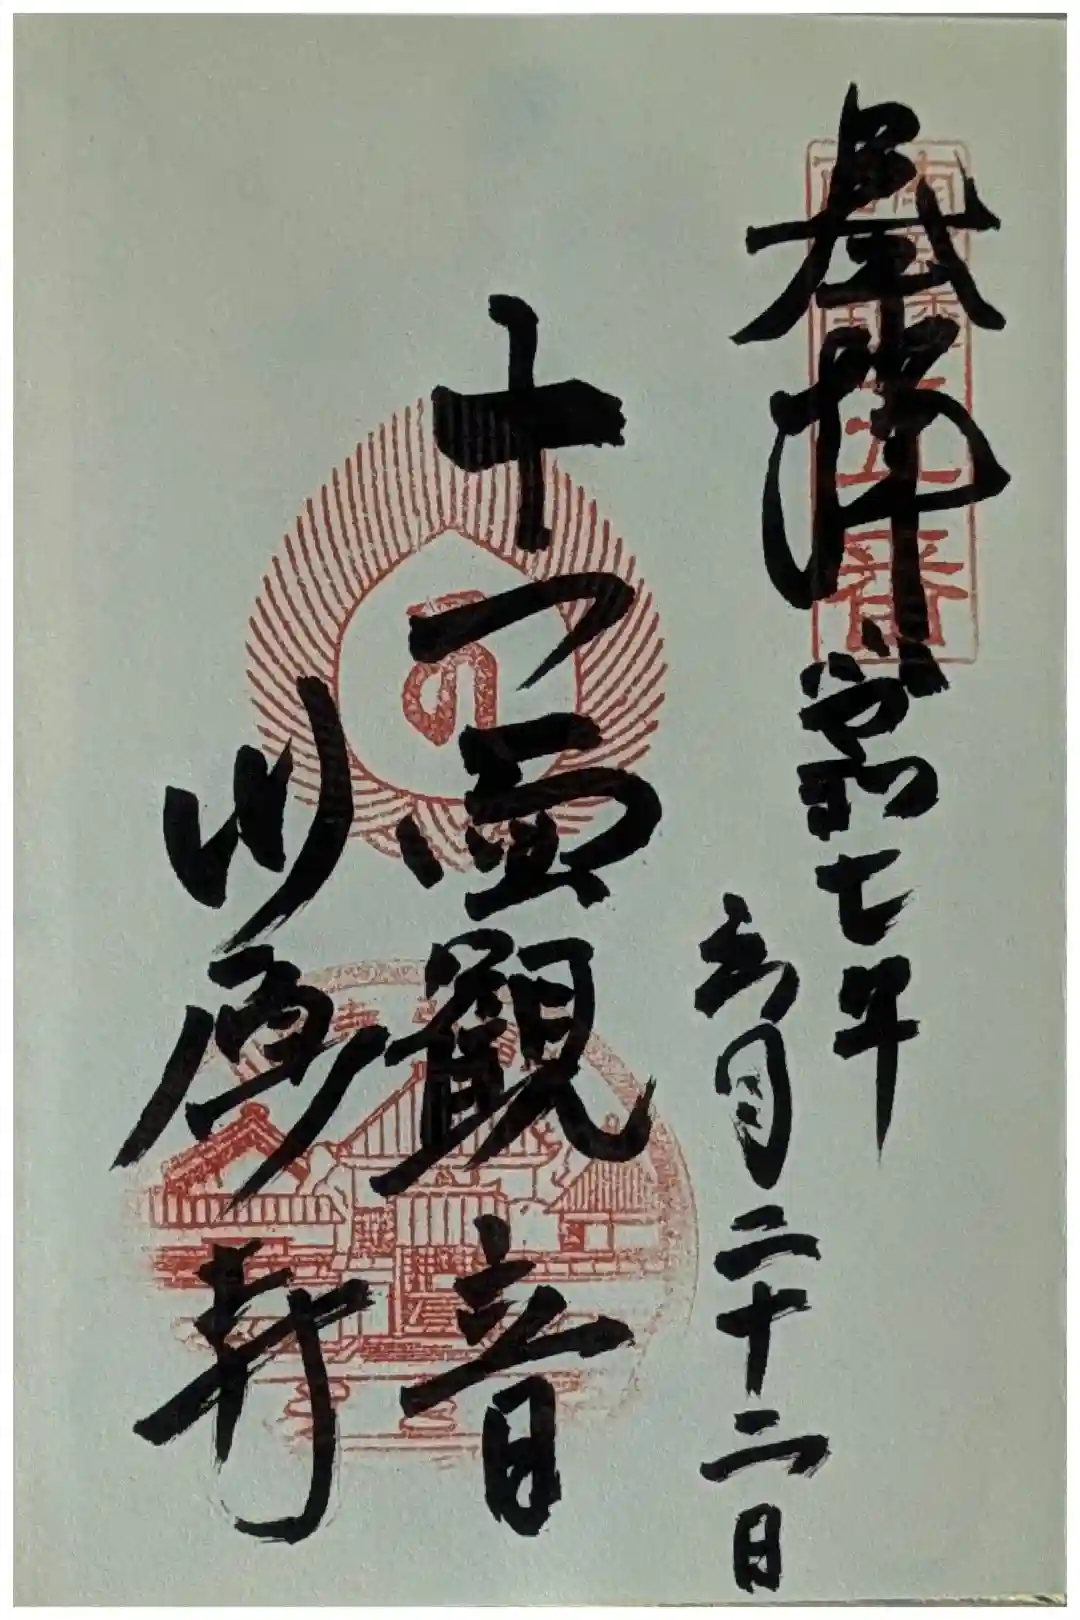 奉拝 令和七年
五月二十二日
十一面觀音
川原寺